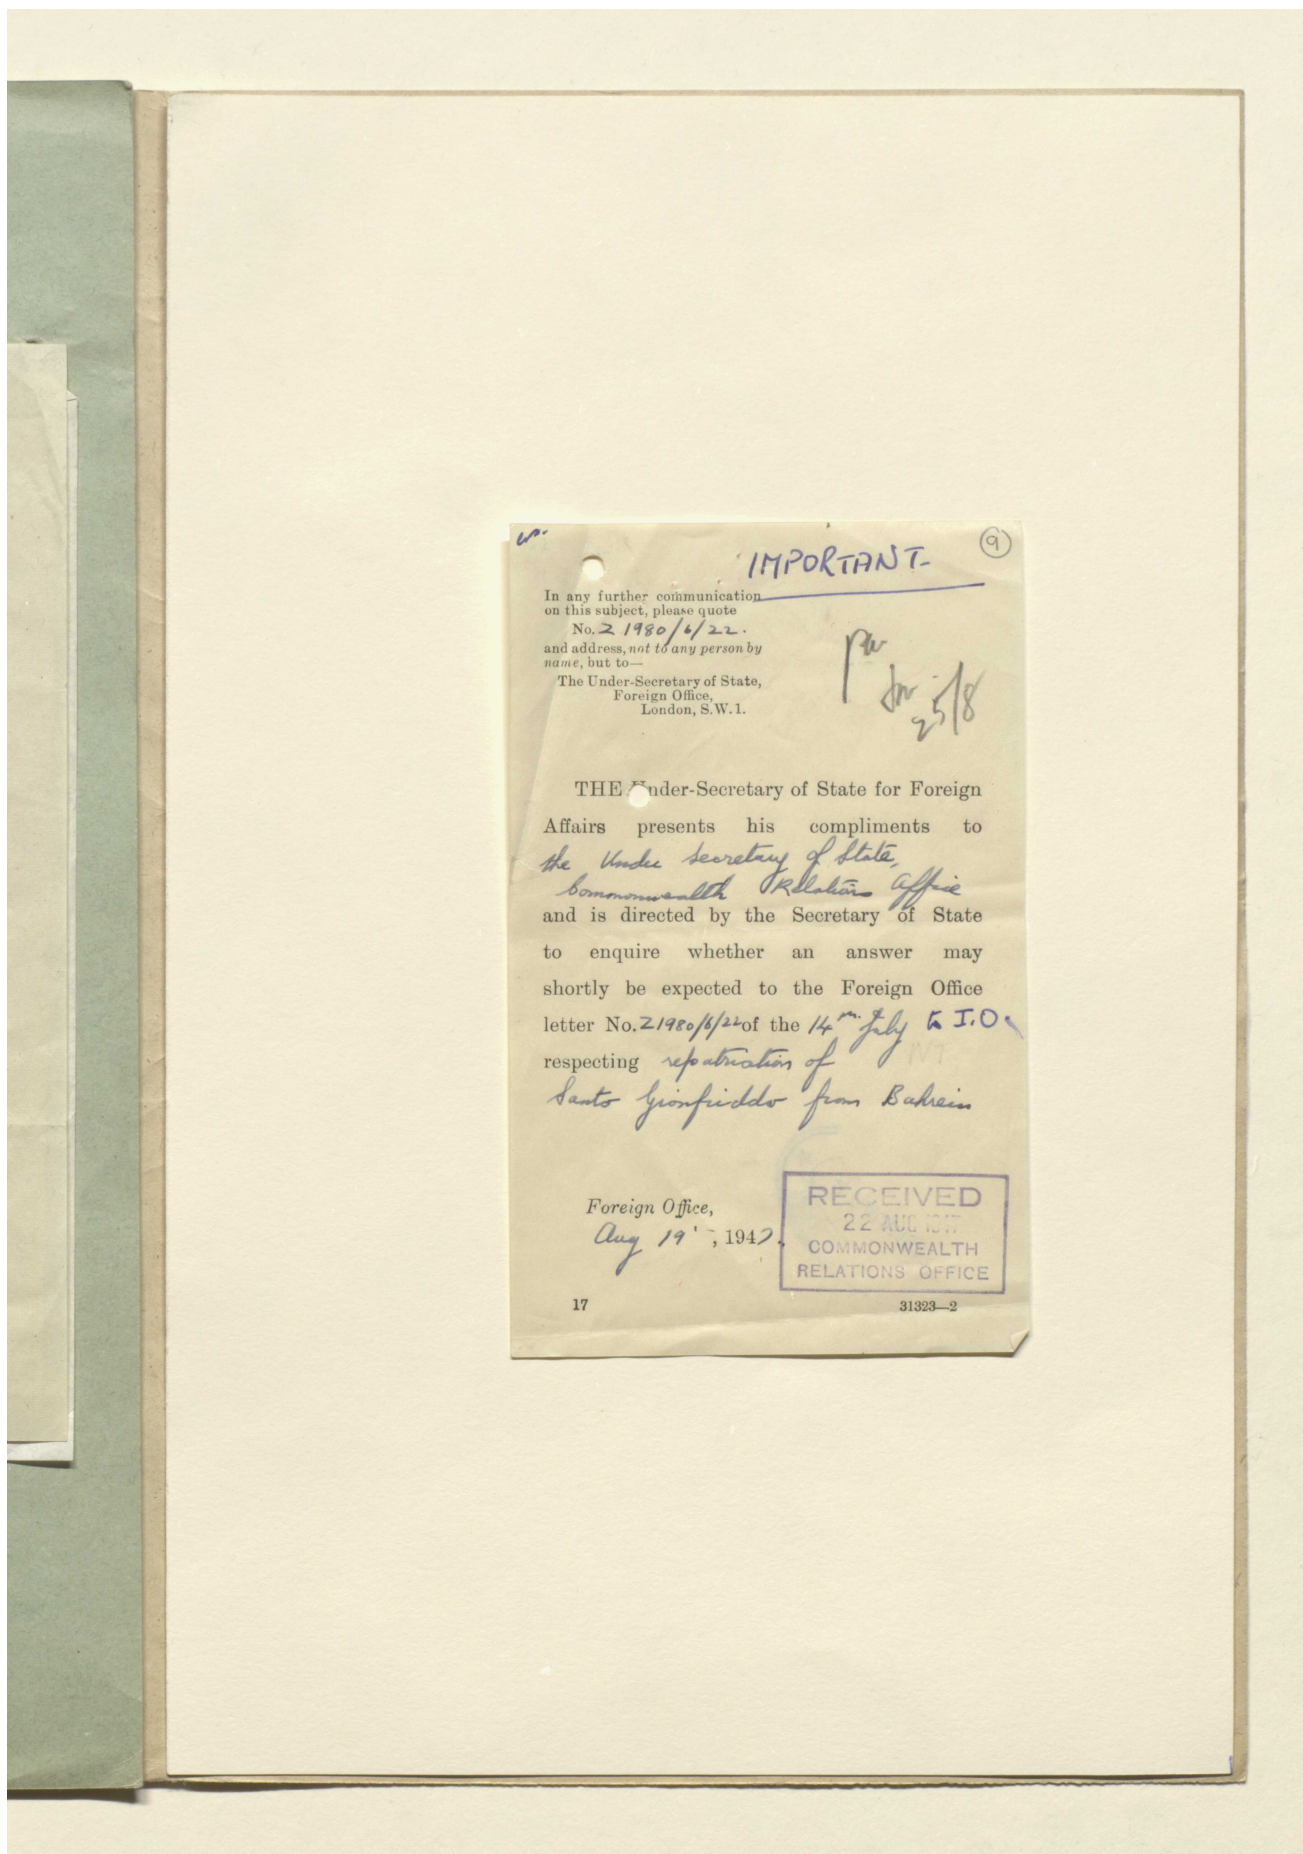 IMPORTANT-
9
In any further communication
on this subject, please quote
No. Z 1980/6/22.
and address, not to any person by
name, but to—
The Under-Secretary of State,
Foreign Office,
London, S.W.1.
25/8
THE Under-Secretary of State for Foreign
Affairs presents his compliments to
the Under Secretary of State,
Commonwealth Relations Office
and is directed by the Secretary of State
to enquire whether an answer may
shortly be expected to the Foreign Office
letter No. Z1980/6/22 of the 14th July to I.O.
respecting repatriation of
Santo Gionfriddo from Bahrein
Foreign Office,
Aug 19, 1947.
RECEIVED
22 AUG 1947
COMMONWEALTH
RELATIONS OFFICE
17
31323—2